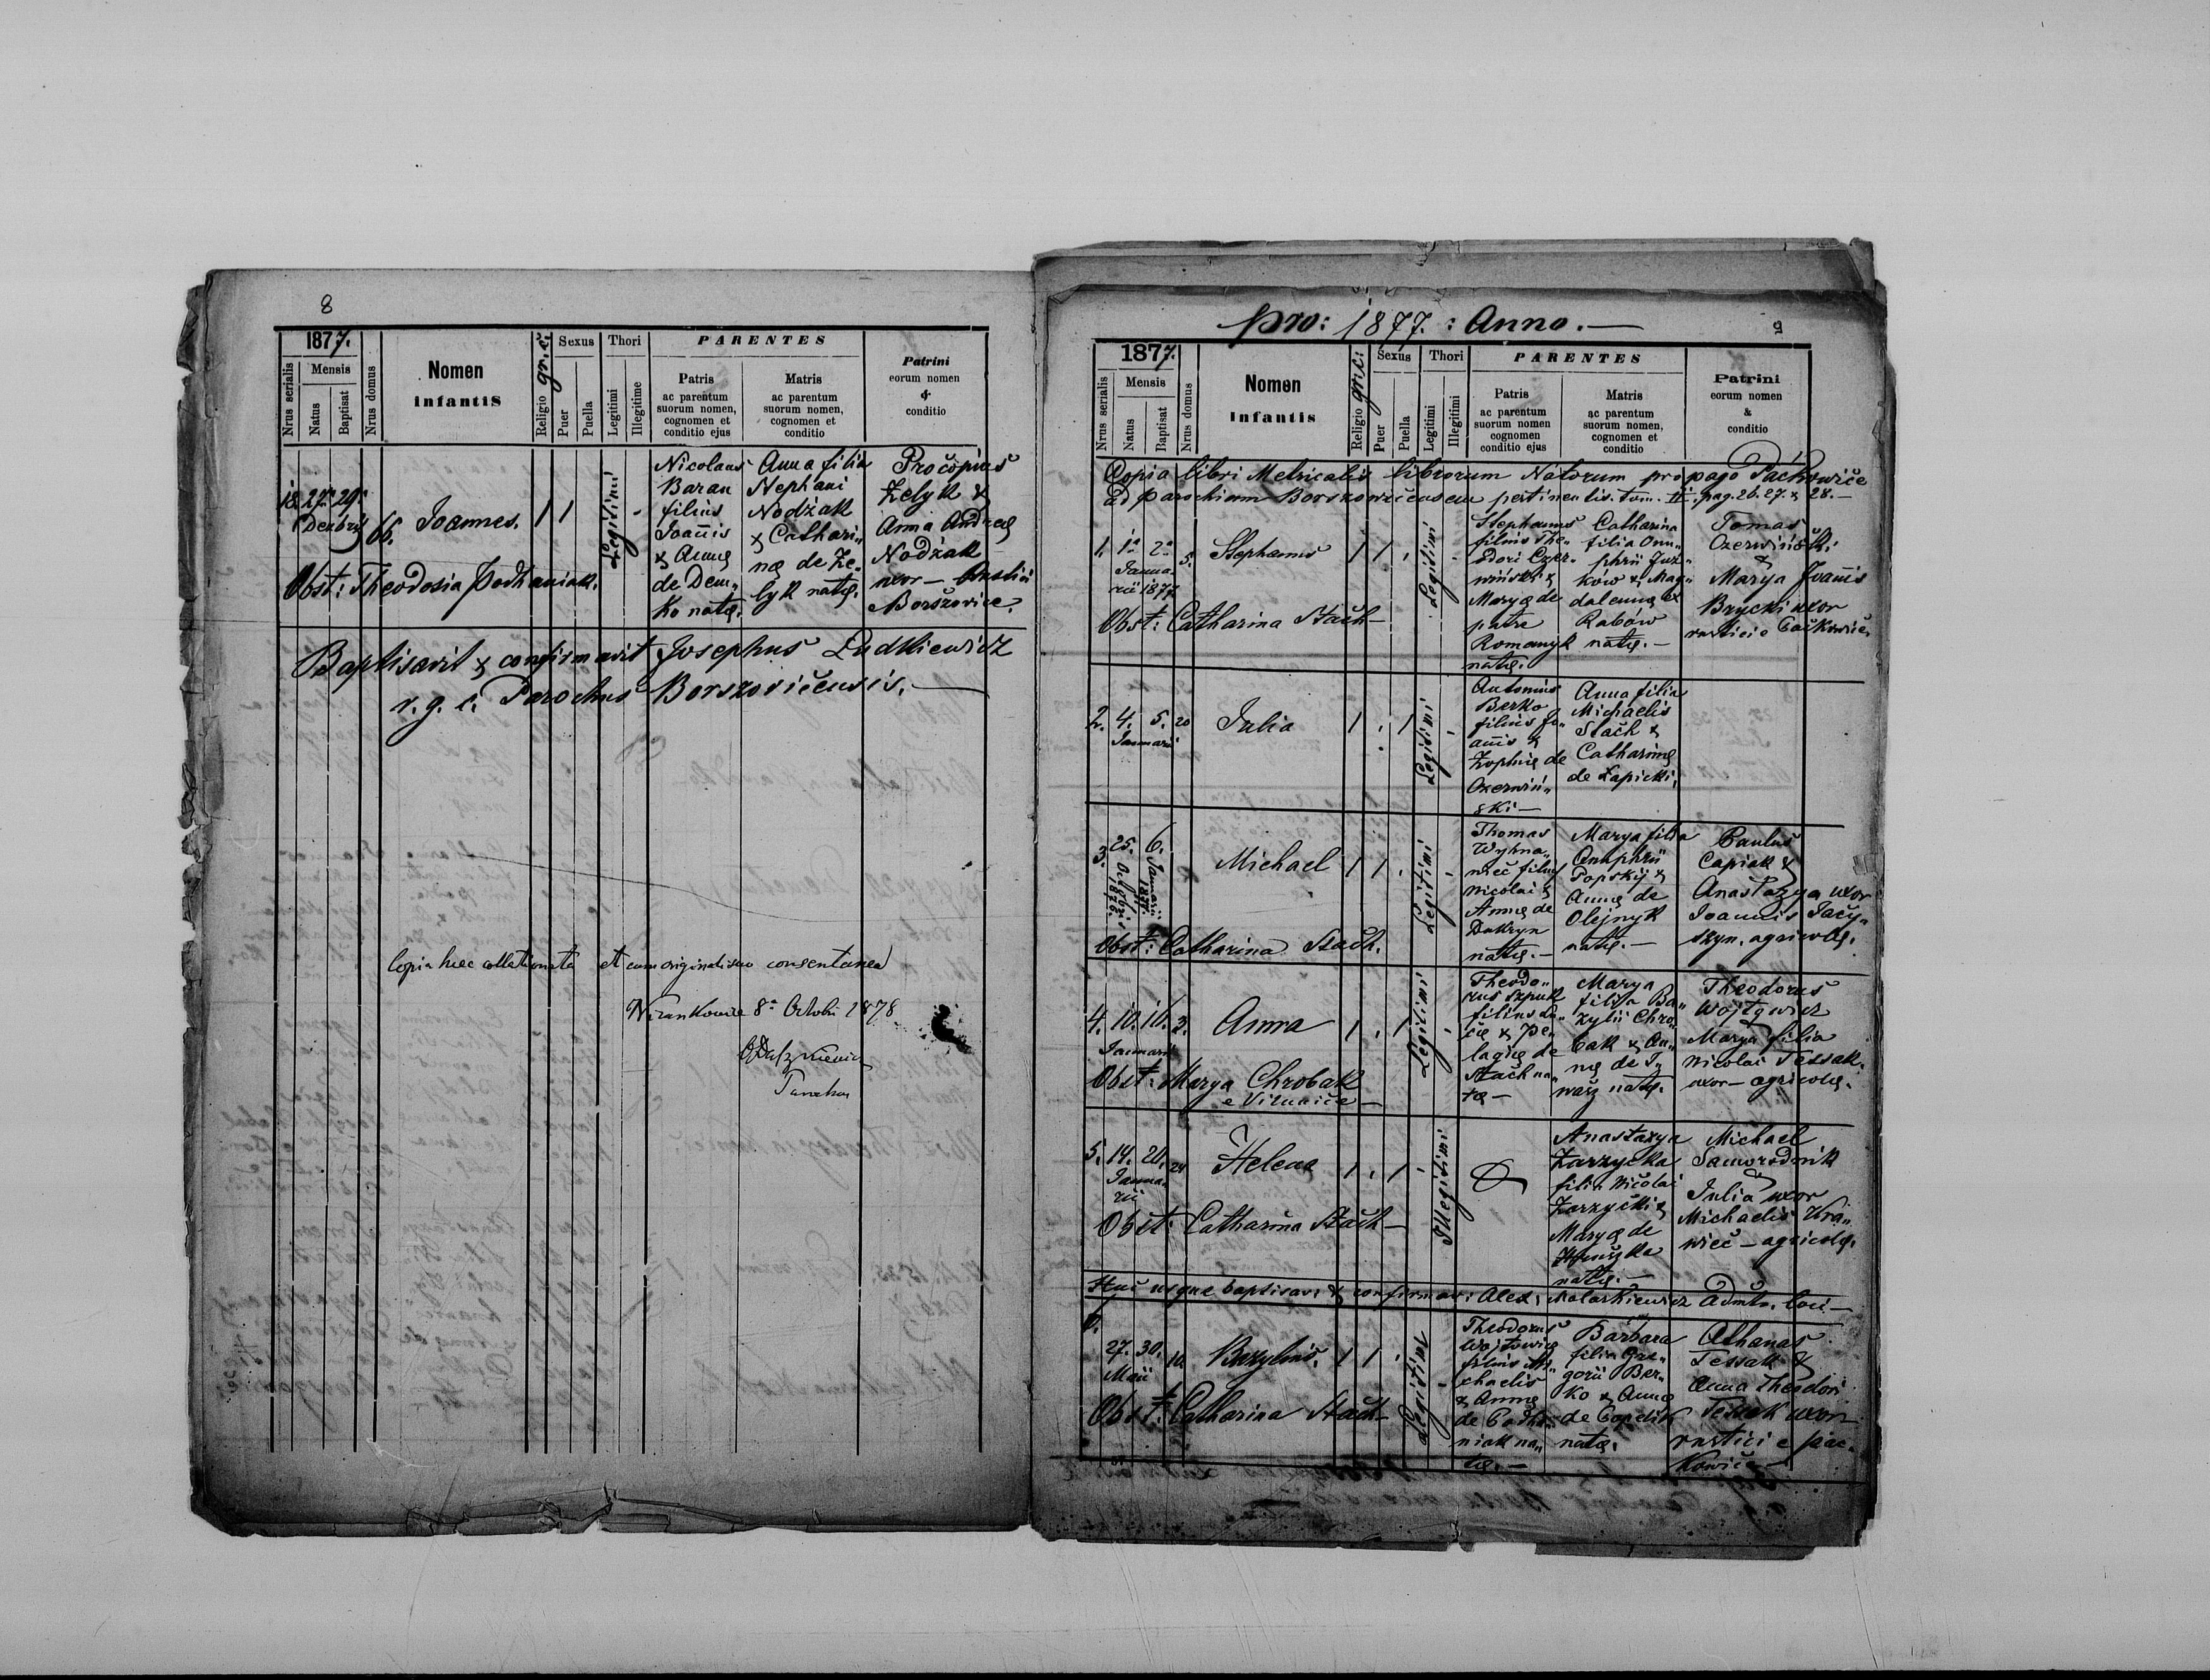 8
1877.
Nrus serialis
Mensis
Natus
Baptisat
Nrus domus
Nomen
infantis
Religio gr. c.
Sexus
Puer
Puella
Thori
Legitimi
Illegitime
PARENTES
Patris
ac parentum
suorum nomen,
cognomen et
conditio ejus
Matris
ac parentum
suorum nomen,
cognomen et
conditio
Patrini
eorum nomen
&
conditio
18. 27. 29.
Dezbris
66.
Joannes.
1 1 -
Legitimi
Nicolaus
Baran
filius
Joañis
& Annę
de Dem„
ko natę.
Anna filia
Stephani
Nodżak
& Cathari„
næ de Ze„
lyk natę.
Procopius
Zelyk &
Anna Andreę
Nodżak
uxor – rustici
Borszovice.
Obst: Theodosia Podhaniak.
Baptisavit & confirmavit Josephus Dudkiewicz
r. g. c. Parochus Borszovičensis.
Copia hæc collationata et cum originali suo consentanea
Nizankovice 8ª Octobri 1878
Parochus
pro: 1877. : Anno. —
9
1877.
Nrus serialis
Mensis
Natus
Baptisat
Nrus domus
Nomen
infantis
Religio gr. c.
Sexus
Puer
Puella
Thori
Legitimi
Illegitimi
PARENTES
Patris
ac parentum
suorum nomen
cognomen
conditio ejus
Matris
ac parentum
suorum nomen,
cognomen et
conditio
Patrini
eorum nomen
&
conditio
Copia libri Metricalis librorum Natorum pro pago Packowiče
ad parochium Borszowičensem pertinentis. tom. II. pag. 26. 27. & 28. —
1. 1ª 2ª 5.
Janua„
rii 1877
Stephanus
1 1 .
Legitimi
Stephanus
filius The„
odori Czer„
wiński &
Maryę de
patre
Romanyk
natę.
Catharina
filia Onu„
phrii Już„
ków & Mag„
dalennę ex
Rabów
natę. —
Tomas
Czerwiński
&
Marya Joañis
Brycki uxor
rustici e Packowiče
Obst: Catharina Stach —
2. 4. 5. 20
Januarii
Julia
1 . 1
Legitimi
Antonius
Berko
filius Jo„
añis &
Zophię de
Czerwiń„
ski —
Anna filia
Michaelis
Stach &
Catharinę
de Łapicki,
3. 25. 6.
Octobri 1876.
Januarii 1877.
Michael
1 1 .
Legitimi
Thomas
Wyhna„
nieč filius
Nicolai &
Annę de
natę. —
Marya filia
Onuphrii
Popskij &
Annę de
Olejnyk
natę. —
Paulus
Capiak &
Anastazya uxor
Joannis Jacy„
szyn. agricolę.
Obst: Catharina Stach.
4. 10. 16. 2.
Januarii
Anna
1 . 1
Legitimi
Theodo„
rus Szpuk
filius Lu„
cę & Pe„
lagię de
Stach na„
tę —
Marya
filia Ba„
zylii Chro„
bak & An„
nę de I„
wasz natę.
Theodorus
Wojtowicz
&
Marya filia
Nicolai Tessak.
uxor – agricolę.
Obst: Marya Chrobak
e Vitunice —
5. 14. 20. 24
Janua„
rii
Helena
1 . 1
Illegitimi
Anastazya
Zarzycka
filia Nicolai
Zarzycki &
Maryę de
Hruszka
natę. —
Michael
Samorodnik
&
Julia uxor
Michaelis Kra„
wieč – agricolę.
Obst: Catharina Stach —
Huč usque baptisavi & confirmavi Alex, Malarkiewicz Admtr. loci —
6.
27. 30. 10.
Maii
Bazylius.
1 1 .
Legitimi
Theodorus
Wojtowicz
filius Mi„
chaelis
& Annę
de Podha„
niak na„
tę. —
Barbara
filia Gre„
gorii Ber„
ko & Annę
de Copcik
natę.
Athanas
Tessak &
Anna Theodori
Tessak uxor
rustici e pac„
kowiče —
Obst: Catharina Stach —